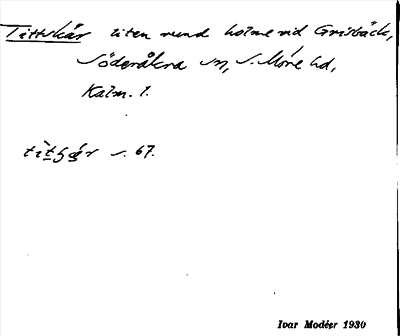 Tittskär liten rund holme vid Grisbäck,
Söderåkra sn, S. Möre hd,
Kalm. l.
s. 67.
Ivar Modéer 1930